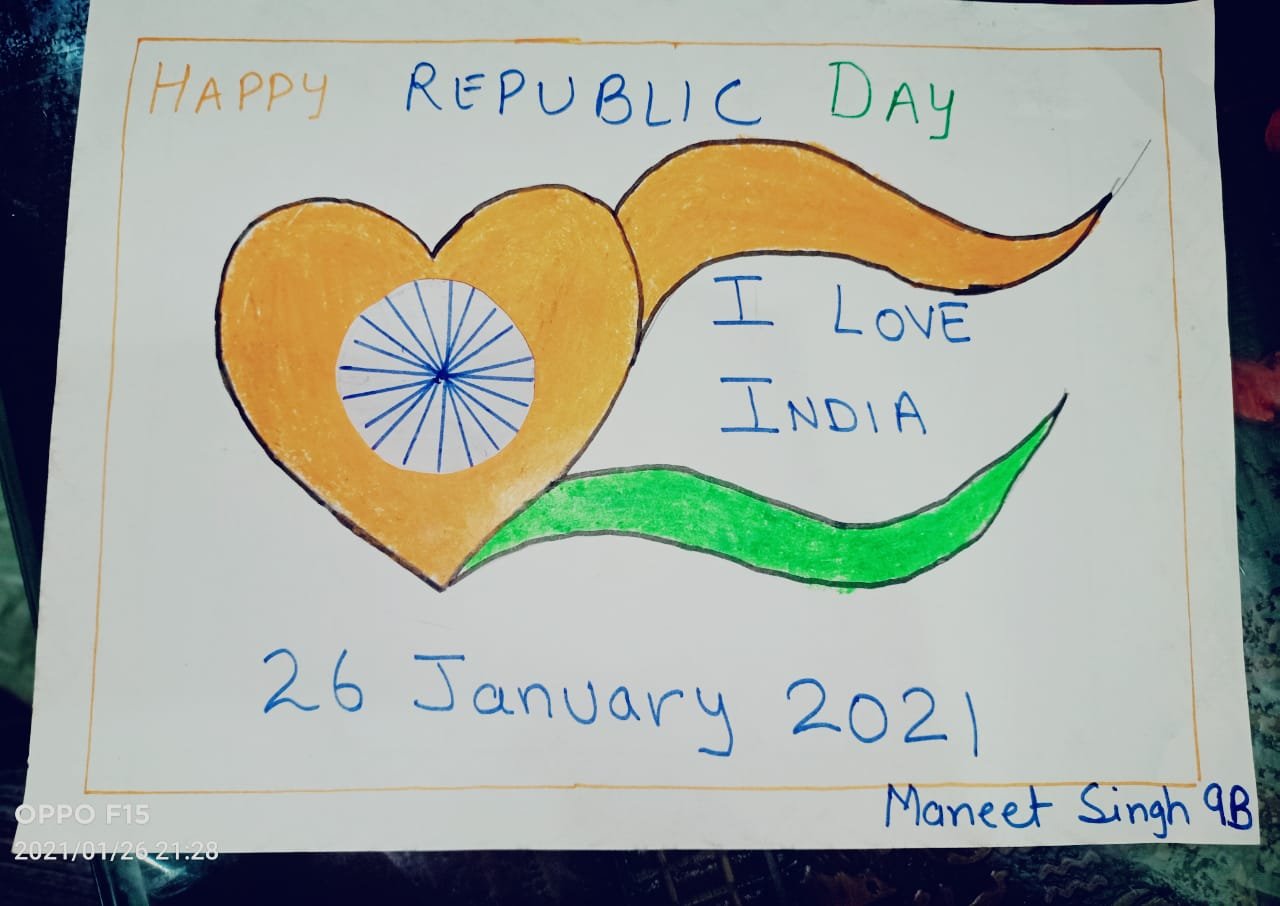 HAPPY REPUBLIC DAY
I LOVE
INDIA
26 January 2021
Maneet Singh 9B
OPPO F15
2021/01/26 21:28